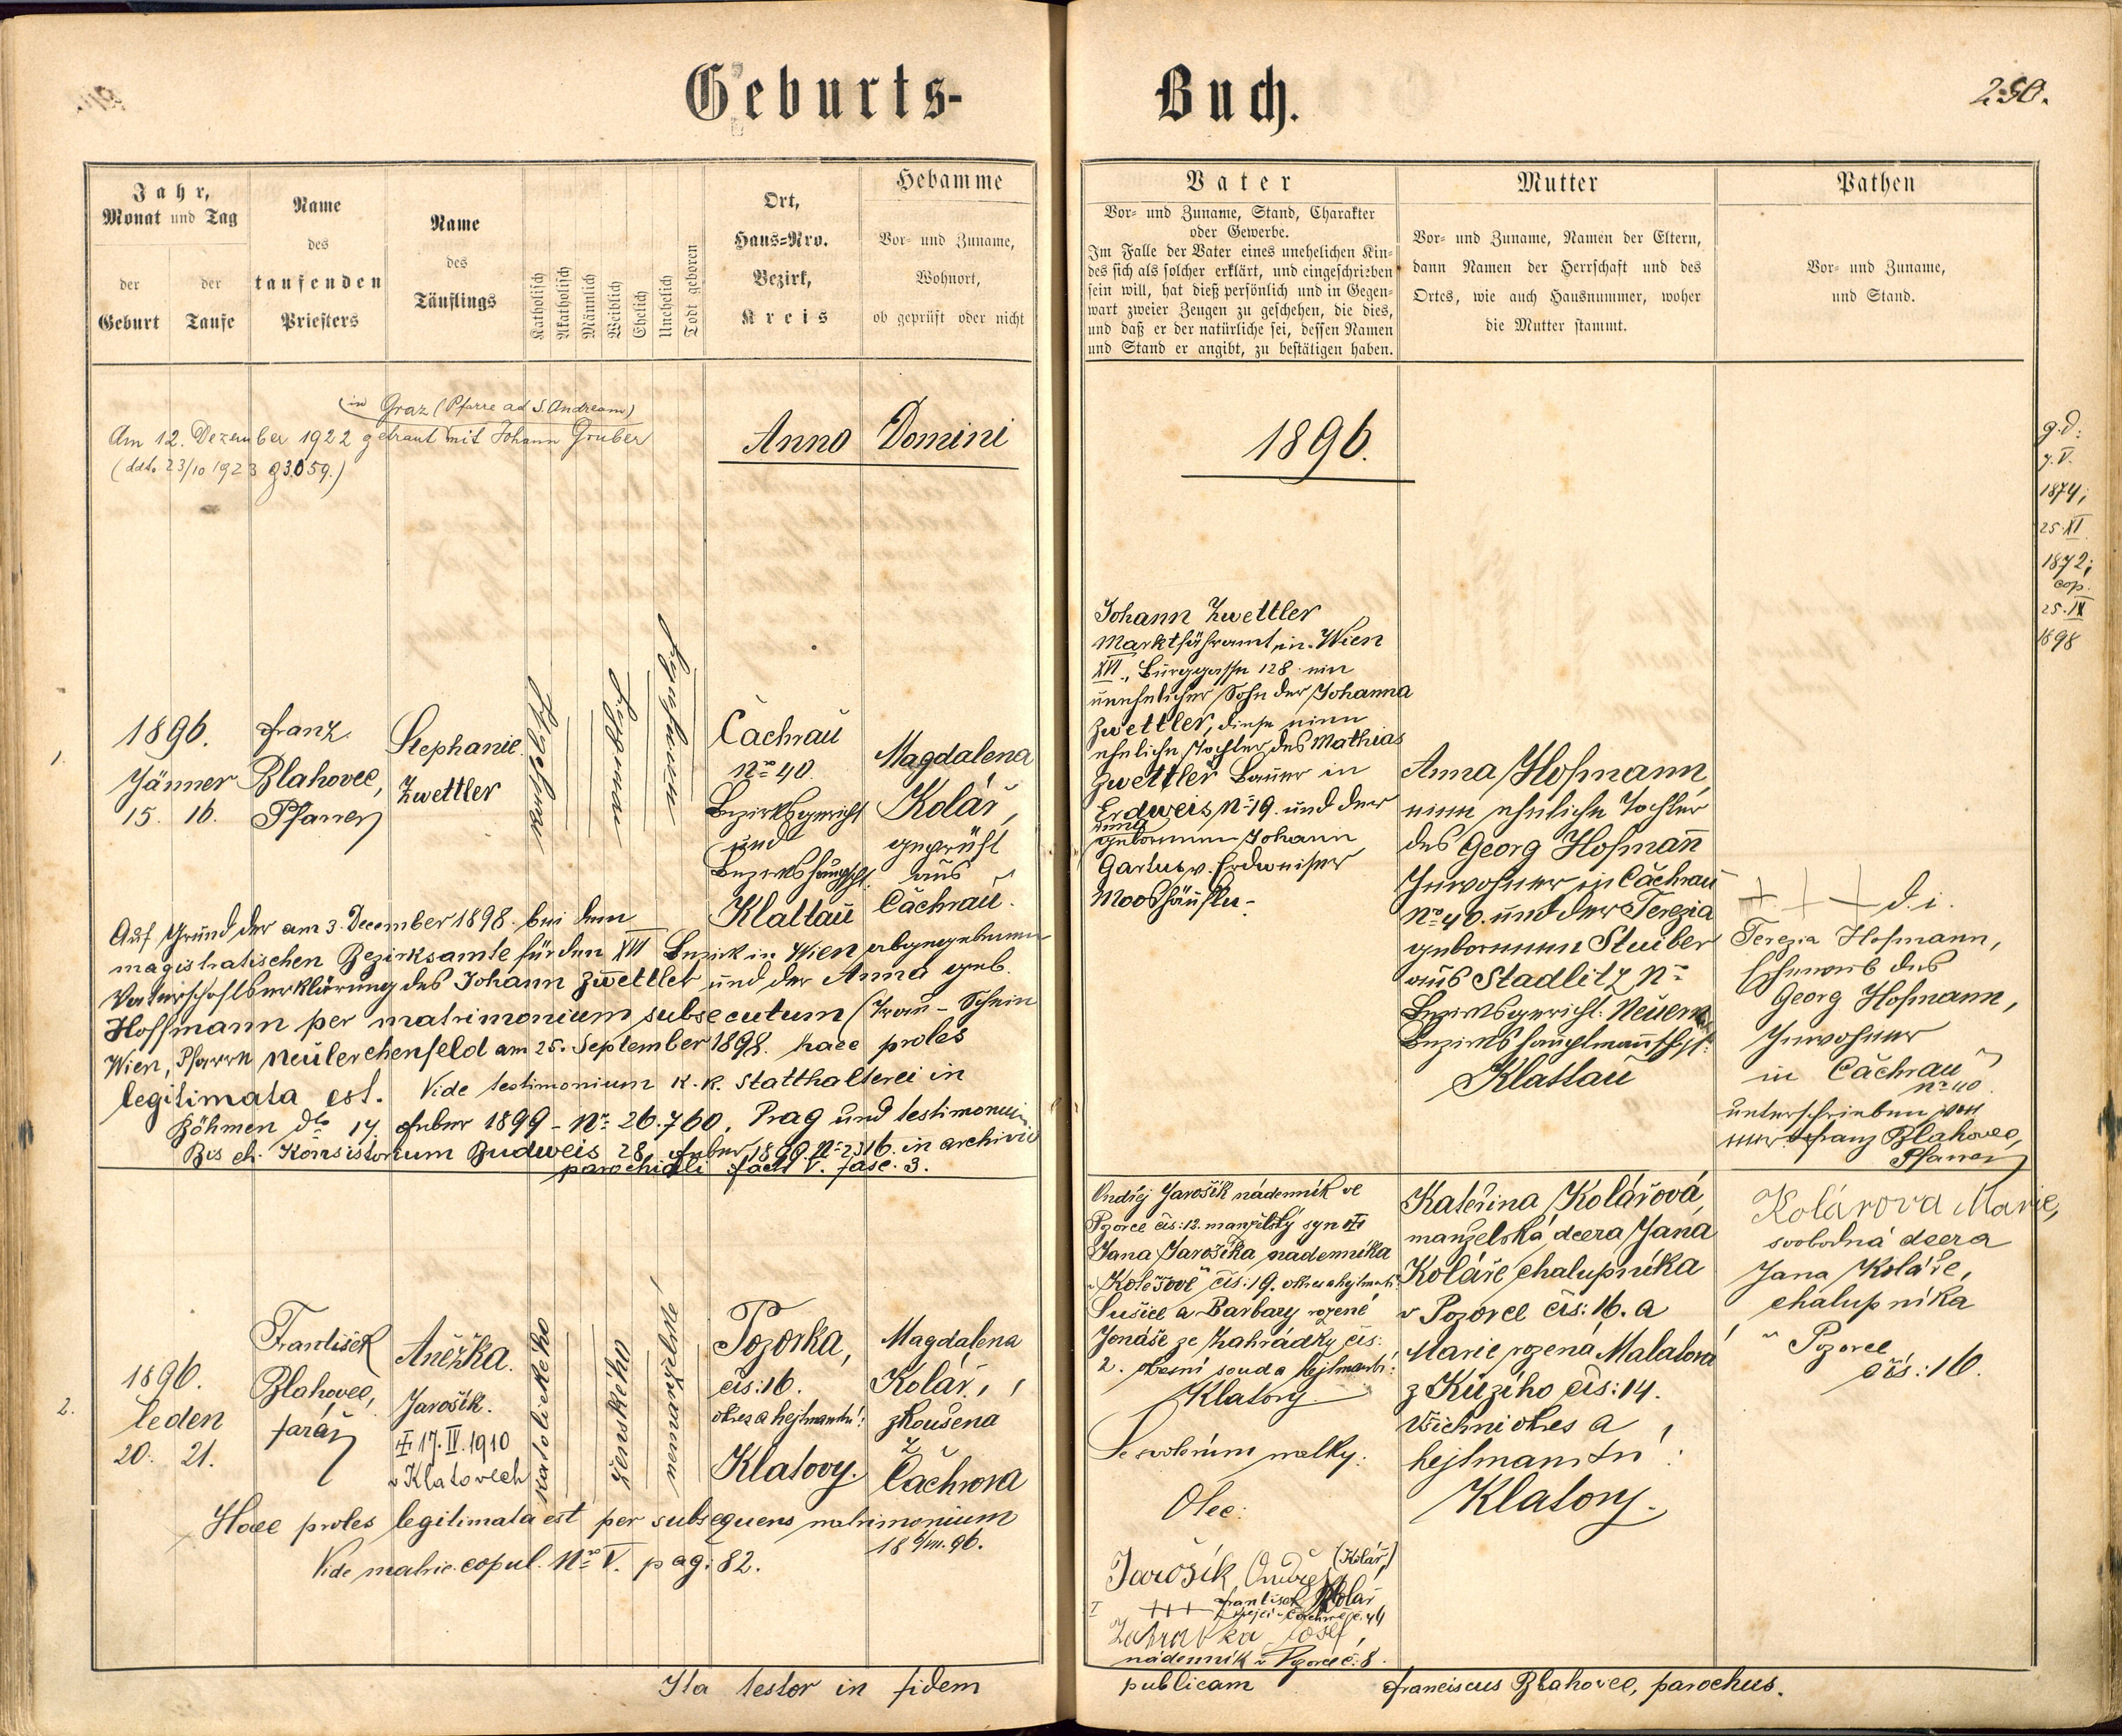 Geburts-
Buch.
250.
Jahr,
Monat und Tag
der
Geburt
der
Taufe
Name
des
taufenden
Priesters
Name
des
Täuflings
Katholisch
Akatholisch
Männlich
Weiblich
Ehelich
Unehelich
Todt geboren
Ort,
Haus-Nro.
Bezirk,
Kreis
Hebamme
Vor- und Zuname,
Wohnort,
ob geprüft oder nicht
Vater
Vor- und Zuname, Stand, Charakter
oder Gewerbe.
Im Falle der Vater eines unehelichen Kin-
des sich als solcher erklärt, und eingeschrieben
sein will, hat dieß persönlich und in Gegen-
wart zweier Zeugen zu geschehen, die dies,
und daß er der natürliche sei, dessen Namen
und Stand er angibt, zu bestätigen haben.
Mutter
Vor- und Zuname, Namen der Eltern,
dann Namen der Herrschaft und des
Ortes, wie auch Hausnummer, woher
die Mutter stammt.
Pathen
Vor- und Zuname,
und Stand.
(in Graz (Pfarre ad S. Andream)
Am 12. Dezember 1922 getraut mit Johann Gruber
(ddto 23/10 1923 93.059.)
Anno Domini
1896.
g.d:
7. V.
1874;
25. XI
1872;
cop.
25. IX
1898
1.
1896.
Jänner
15. 16.
Franz
Blahovec,
Pfarrer
Stephanie
Zwettler
Čachrau
No 40.
Bezirksgericht
und
Bezirkshauptschft.
Klattau
Magdalena
Kolář,
geprüft
aus
Čachrau.
Johann Zwettler
in Wien
XVI., Burggasse 128. ein
unehelicher Sohn der Johanna
Zwettler, diese eine
eheliche Tochter des Mathias
Zwettler Bauer in
Erdweis No 19. und der
geborenen Johann
v. Erdweiser
Mooshäuseln.
Anna Hofmann,
eine eheliche Tochter
des Georg Hofmann
Inwohner in Čachrau
No 40. und der Terezia
geborenen Stuiber
aus Stadlitz No
Bezirksgericht: Neuern
Bezirkshauptmannschft:
Klattau
+ + + d. i.
Terezia Hofmann,
Eheweib des
Georg Hofmann,
Inwohner
in Čachrau
No 40.
unterschrieben von
mir Franz Blahovec,
Pfarrer
Auf Grund der am 3. December 1898. bei dem
magistratischen Bezirksamte für den XVI Bezirk in Wien abgegebenen
Vaterschaftserklärung des Johann Zwettler und der Anna geb.
Hoffmann per matrimonium subsecutum (Trau-Schein
Wien, Pfarre Neulerchenfeld am 25. September 1898. haec proles
legitimata est. Vide testimonium K. K. Statthalterei in
Böhmen dto 14 Feber 1899 - No: 26.760. Prag und testimonium
Bis ch. Konsistorium Budweis 28. Feber 1899. No 2316. in archivio
parochiali fach V. fasc. 3.
2.
1896.
leden
20. 21.
František
Blahovec,
farář
Anežka.
Jarošík.
17. IV. 1910
v Klatovech
katolického
ženského
nemanželské
Pozorka,
čis: 16.
okres a hejtmanství:
Klatovy.
Magdalena
Kolář,
zkoušena
z
Čachrova
Ondřej Jarošík nádenník ve
Pozorce čis: 12. manželský syn
Jana Jarošíka nádenníka
v Kolešově čis: 19.
Sušice a Barbary rozené
Jonáše ze Zahrádky čis:
2. okresní soud a hejtmanství:
Klatovy
Se svolením matky:
Otec:
Jarošík Ondřej
(Kolář)
+++ František Kolář
Josef,
nádenník v Pozorce č: 8.
Kateřina Kolářová,
manželská dcera Jana
Koláře, chalupníka
v Pozorce čis: 16. a
Marie rozená Malatová
z Kůzího čis: 14.
Všichni okres a
hejtmanství:
Klatovy.
Kolárova Marie,
svobodná dcera
Jana Koláře,
chalupníka
v Pozorce
čis: 16.
Haec proles legitimata est per subsequens matrimonium
18 6/VII. 96.
Vide matric. copul. No V. pag: 82.
Ita testor in fidem
publicam
Franciscus Blahovec, parochus.